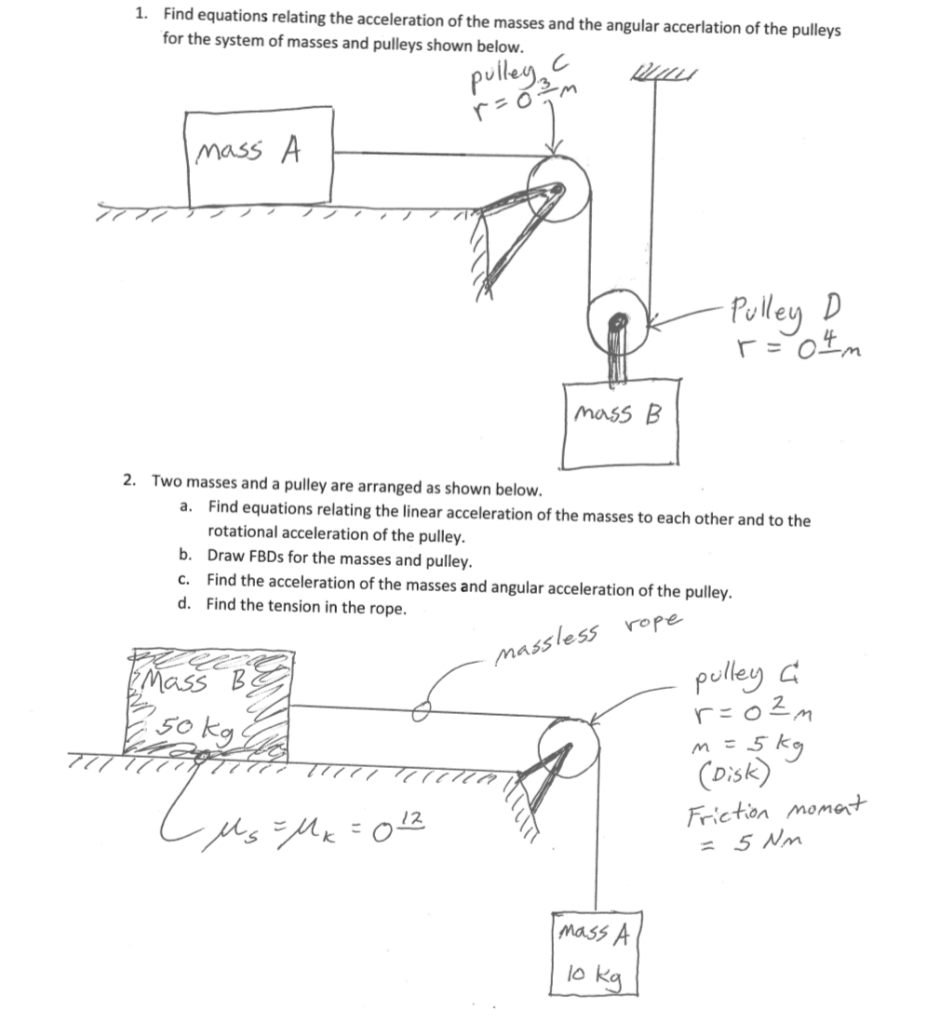 1. Find equations relating the acceleration of the masses and the angular accerlation of the pulleys
for the system of masses and pulleys shown below.
pulley C
r = 0 3 m
mass A
Pulley D
r = 0 4 m
mass B
2. Two masses and a pulley are arranged as shown below.
a. Find equations relating the linear acceleration of the masses to each other and to the
rotational acceleration of the pulley.
b. Draw FBDs for the masses and pulley.
c. Find the acceleration of the masses and angular acceleration of the pulley.
d. Find the tension in the rope.
massless rope
Mass B
50 kg
pulley C
r = 0 2 m
m = 5 kg
(Disk)
Friction moment
= 5 Nm
μs = μk = 0 12
mass A
10 kg